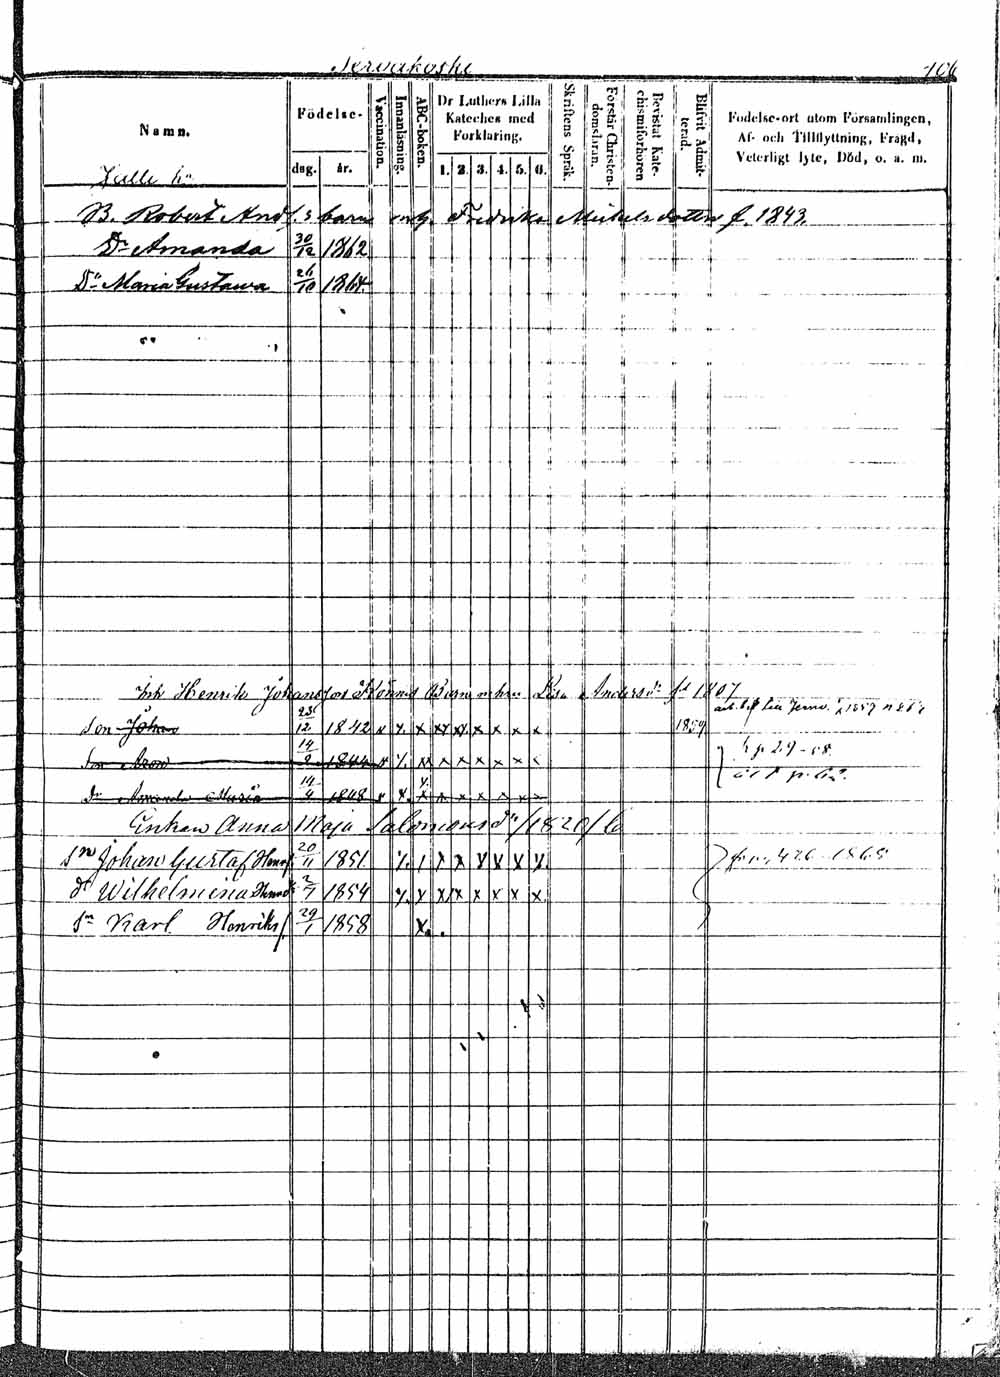 Jervakoski 106
Namn.
Födelse-
dag. år.
Vaccination.
Innanläsning.
ABC-boken.
Dr Luthers Lilla
Kateches med
Förklaring.
1. 2. 3. 4. 5. 6.
Skriftens Språk.
Förstår Christen-
domsläran.
Bevistat Kate-
chismiförhören
Blifvit Admit-
terad.
Födelse-ort utom Församlingen,
Af- och Tillflyttning, Frägd,
Veterligt lyte, Död, o. a. m.
B. Robert And f. s barn m. h. Fredrika Michelsdotter f. 1843.
Dr Amanda 30/12 1862
Dr Maria Gustava 26/10 1864
Henrik Johansson Barn m hu Lisa Andersdr fd 1807
Son Johan 23/12 1842 x x x x x x x x x 1859
Son Aron 14/2 1844 x x x x x x x x
Dr Amanda Maria 14/4 1848 x x x x x x x x x
Enkan Anna Maja Salomonsdr /1820/
Sn Johan Gustaf Henrs 20/11 1851 x x x x x x
dr Wilhelmina Henrdr 2/7 1854 x x x x x x x x
Sn Karl Henriks 29/1 1858 x